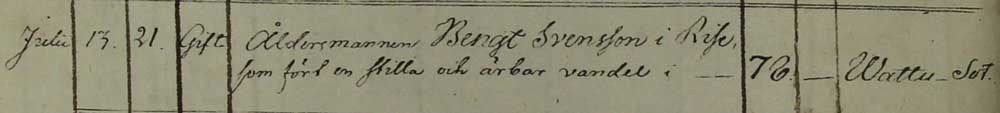 Julii 13. 21. Gift Åldersmannen Bengt Svensson i Rise, 76. — Wattu-Sot.
som fört en stilla och ärbar vandel i —